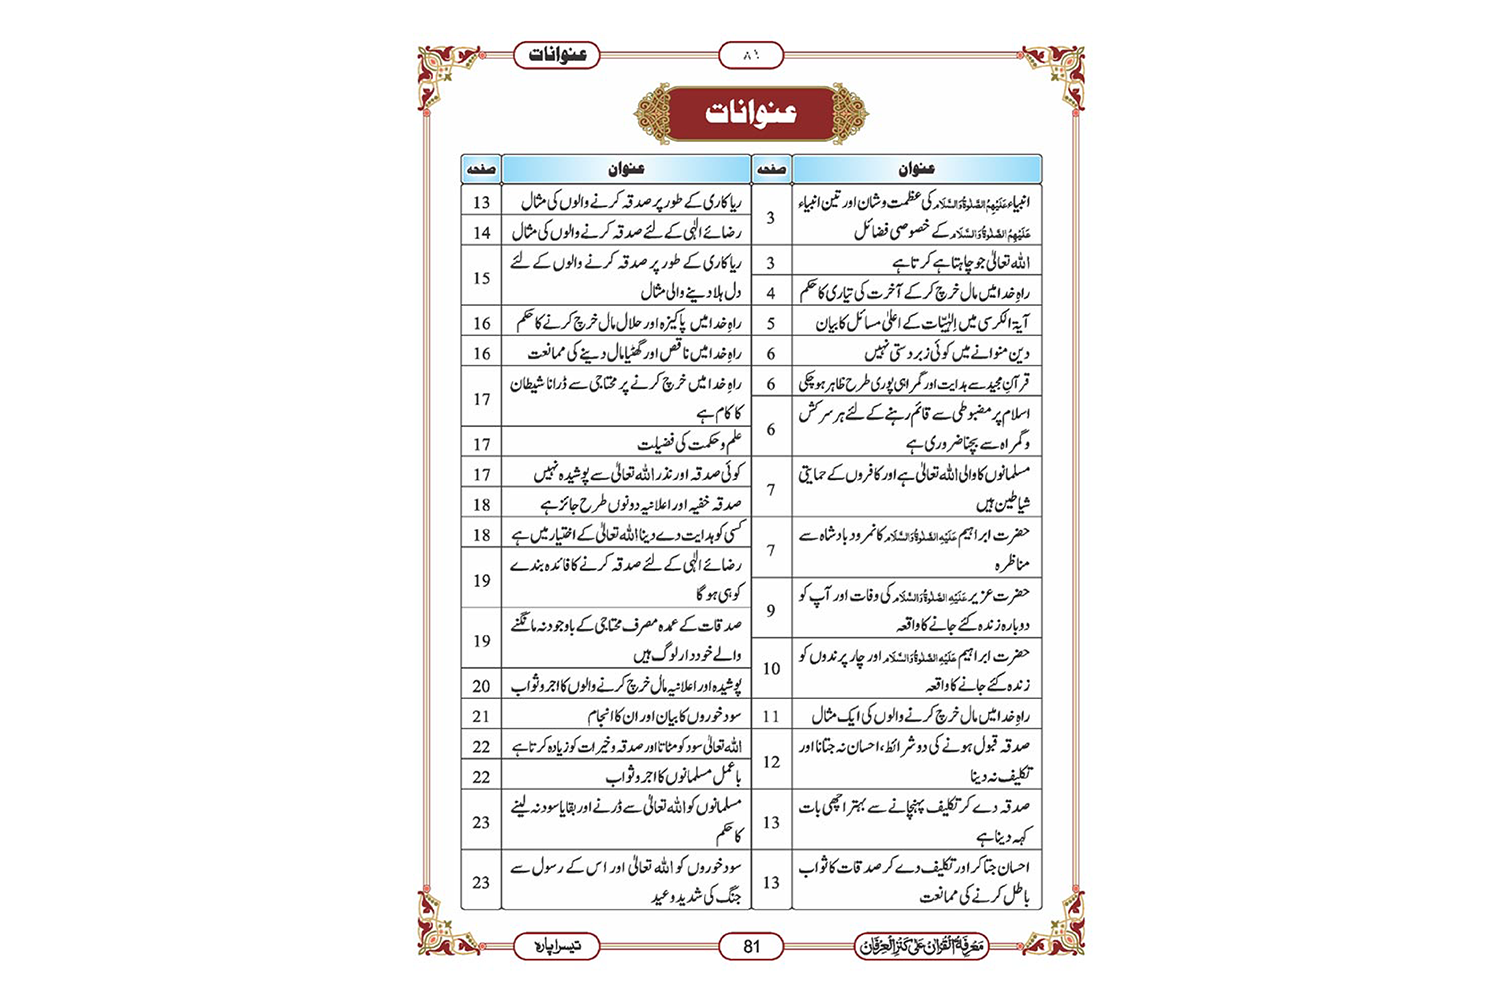 عنوانات
۸۱
عنوانات
عنوان
صفحہ
انبیاء عَلَیْہِمُ الصَّلٰوۃُ وَالسَّلَام کی عظمت و شان اور تین انبیاء
عَلَیْہِمُ الصَّلٰوۃُ وَالسَّلَام کے خصوصی فضائل
3
اللہ تعالیٰ جو چاہتا ہے کرتا ہے
3
راہِ خدا میں مال خرچ کر کے آخرت کی تیاری کا حکم
4
آیۃ الکرسی میں اِلٰہیّات کے اعلیٰ مسائل کا بیان
5
دین منوانے میں کوئی زبردستی نہیں
6
قرآنِ مجید سے ہدایت اور گمراہی پوری طرح ظاہر ہو چکی
6
اسلام پر مضبوطی سے قائم رہنے کے لئے ہر سرکش
و گمراہ سے بچنا ضروری ہے
6
مسلمانوں کا والی اللہ تعالیٰ ہے اور کافروں کے حمایتی
شیاطین ہیں
7
حضرت ابراہیم عَلَیْہِ الصَّلٰوۃُ وَالسَّلَام کا نمرود بادشاہ سے
مناظرہ
7
حضرت عزیر عَلَیْہِ الصَّلٰوۃُ وَالسَّلَام کی وفات اور آپ کو
دوبارہ زندہ کئے جانے کا واقعہ
9
حضرت ابراہیم عَلَیْہِ الصَّلٰوۃُ وَالسَّلَام اور چار پرندوں کو
زندہ کئے جانے کا واقعہ
10
راہِ خدا میں مال خرچ کرنے والوں کی ایک مثال
11
صدقہ قبول ہونے کی دو شرائط، احسان نہ جتانا اور
تکلیف نہ دینا
12
صدقہ دے کر تکلیف پہنچانے سے بہتر اچھی بات
کہہ دینا ہے
13
احسان جتا کر اور تکلیف دے کر صدقات کا ثواب
باطل کرنے کی ممانعت
13
عنوان
صفحہ
ریاکاری کے طور پر صدقہ کرنے والوں کی مثال
13
رضائے الٰہی کے لئے صدقہ کرنے والوں کی مثال
14
ریاکاری کے طور پر صدقہ کرنے والوں کے لئے
دل ہلا دینے والی مثال
15
راہِ خدا میں پاکیزہ اور حلال مال خرچ کرنے کا حکم
16
راہِ خدا میں ناقص اور گھٹیا مال دینے کی ممانعت
16
راہِ خدا میں خرچ کرنے پر محتاجی سے ڈرانا شیطان
کا کام ہے
17
علم و حکمت کی فضیلت
17
کوئی صدقہ اور نذر اللہ تعالیٰ سے پوشیدہ نہیں
17
صدقہ خفیہ اور اعلانیہ دونوں طرح جائز ہے
18
کسی کو ہدایت دے دینا اللہ تعالیٰ کے اختیار میں ہے
18
رضائے الٰہی کے لئے صدقہ کرنے کا فائدہ بندے
کو ہی ہو گا
19
صدقات کے عمدہ مصرف محتاجی کے باوجود نہ مانگنے
والے خود دار لوگ ہیں
19
پوشیدہ اور اعلانیہ مال خرچ کرنے والوں کا اجر و ثواب
20
سود خوروں کا بیان اور ان کا انجام
21
اللہ تعالیٰ سود کو مٹاتا اور صدقہ و خیرات کو زیادہ کرتا ہے
22
باعمل مسلمانوں کا اجر و ثواب
22
مسلمانوں کو اللہ تعالیٰ سے ڈرنے اور بقایا سود نہ لینے
کا حکم
23
سود خوروں کو اللہ تعالیٰ اور اس کے رسول سے
جنگ کی شدید وعید
23
مَعْرِفَۃُ الْقُرْاٰن عَلٰی کَنْزِ الْعِرْفَان
81
تیسرا پارہ